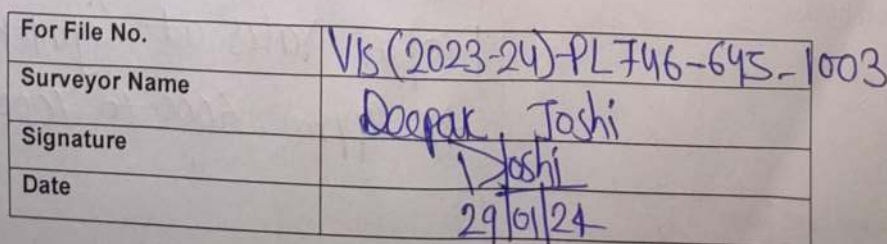 For File No. VIS(2023-24)-PL746-645-1003
Surveyor Name Deepak Joshi
Signature DJoshi
Date 29/01/24